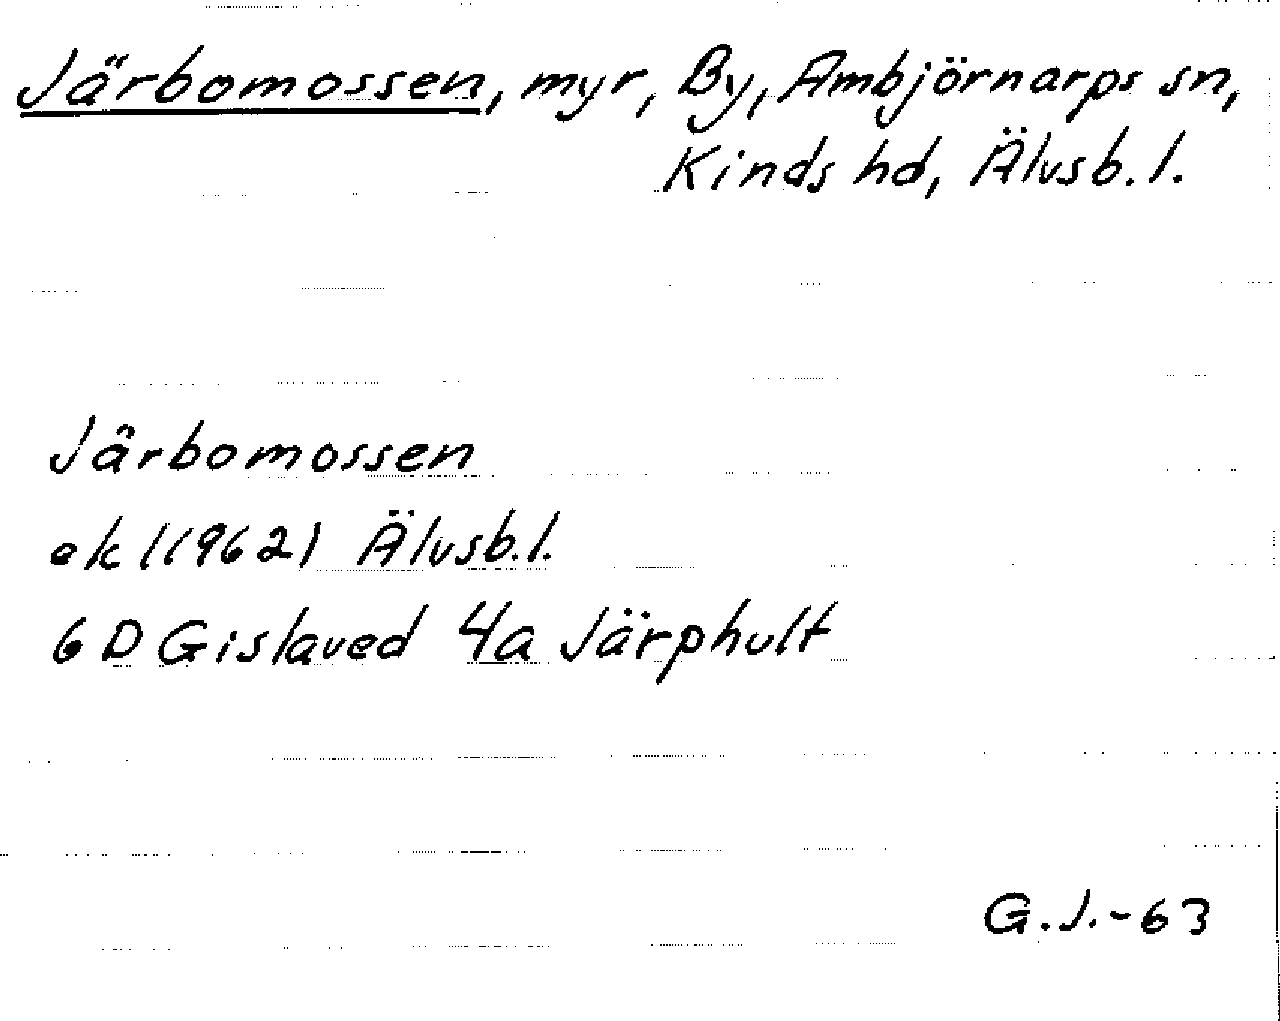 Järbomossen, myr, By, Ambjörnarps sn,
Kinds hd, Älvsb. l.
Järbomossen
ek l (1962) Älvsb. l.
6 D Gislaved 4a Järphult
G. J. -63